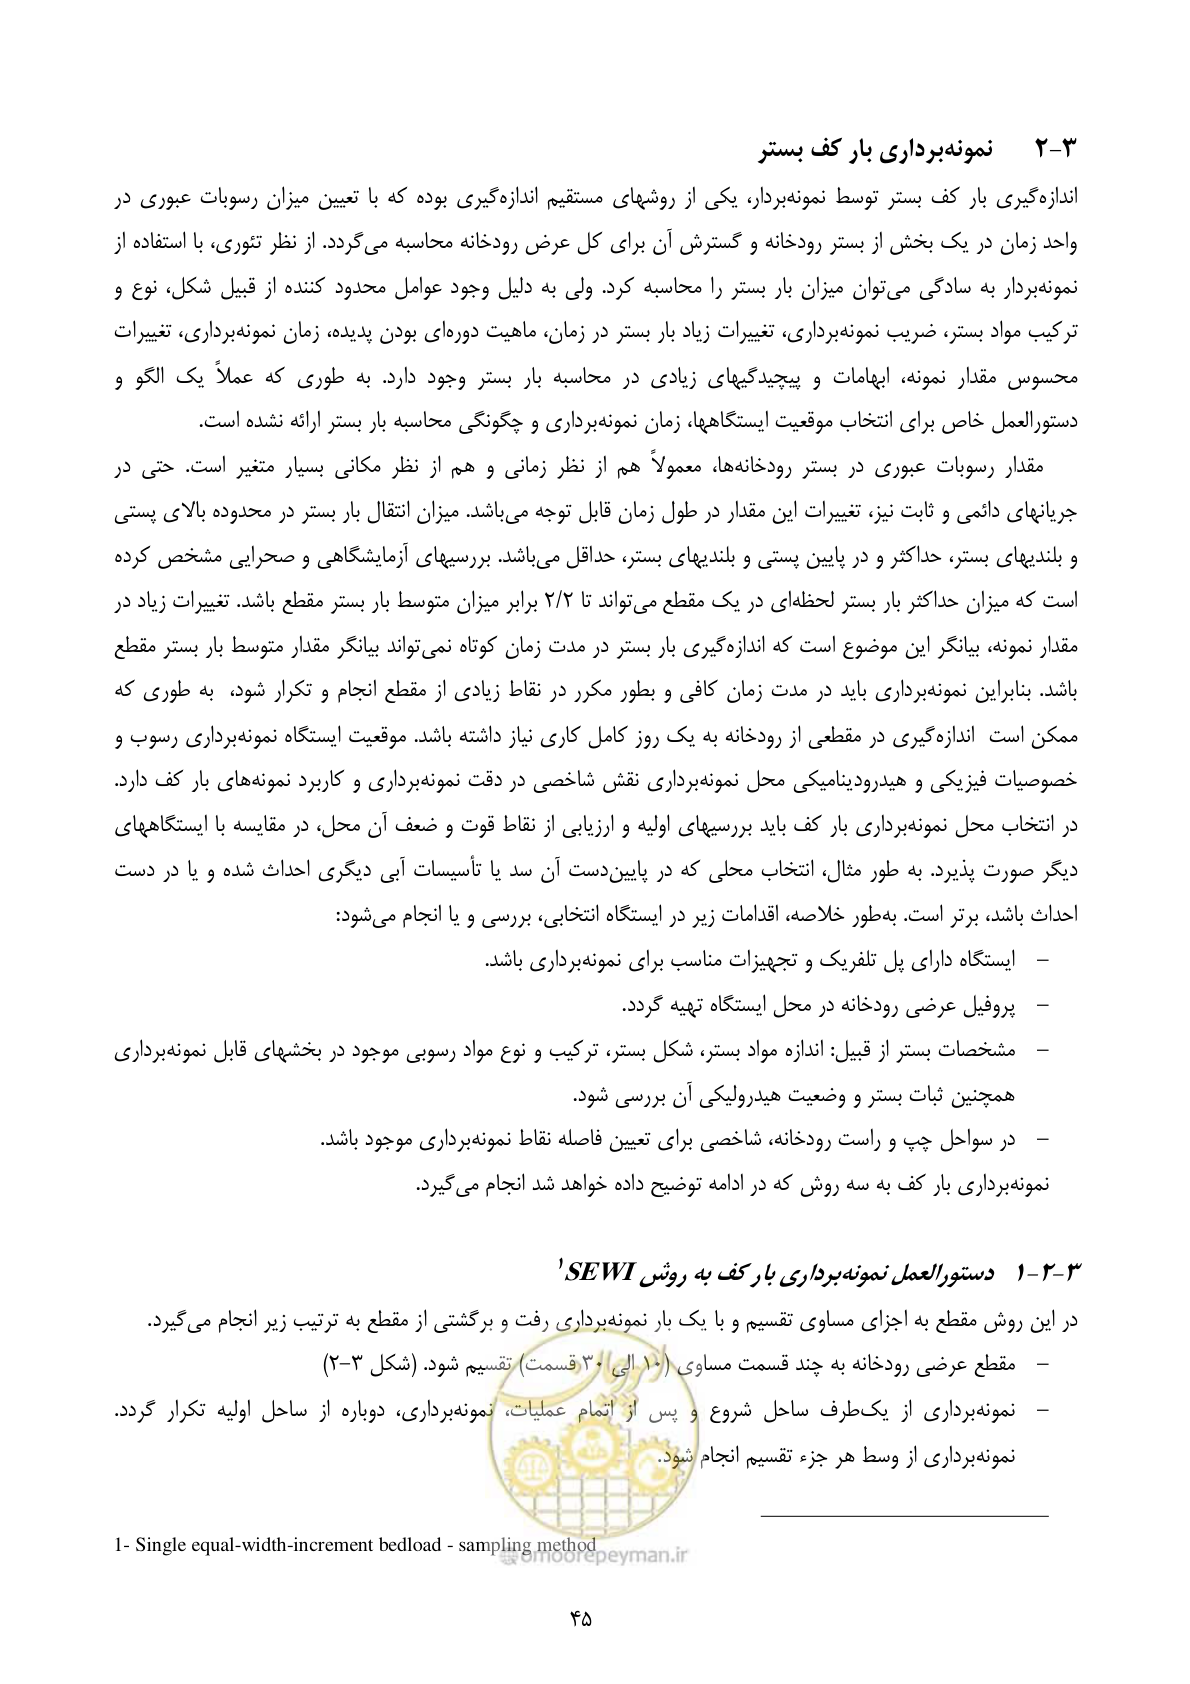 ۲-۳ نمونه‌برداری بار کف بستر
اندازه‌گیری بار کف بستر توسط نمونه‌بردار، یکی از روشهای مستقیم اندازه‌گیری بوده که با تعیین میزان رسوبات عبوری در
واحد زمان در یک بخش از بستر رودخانه و گسترش آن برای کل عرض رودخانه محاسبه می‌گردد. از نظر تئوری، با استفاده از
نمونه‌بردار به سادگی می‌توان میزان بار بستر را محاسبه کرد. ولی به دلیل وجود عوامل محدود کننده از قبیل شکل، نوع و
ترکیب مواد بستر، ضریب نمونه‌برداری، تغییرات زیاد بار بستر در زمان، ماهیت دوره‌ای بودن پدیده، زمان نمونه‌برداری، تغییرات
محسوس مقدار نمونه، ابهامات و پیچیدگیهای زیادی در محاسبه بار بستر وجود دارد. به طوری که عملاً یک الگو و
دستورالعمل خاص برای انتخاب موقعیت ایستگاهها، زمان نمونه‌برداری و چگونگی محاسبه بار بستر ارائه نشده است.
مقدار رسوبات عبوری در بستر رودخانه‌ها، معمولاً هم از نظر زمانی و هم از نظر مکانی بسیار متغیر است. حتی در
جریانهای دائمی و ثابت نیز، تغییرات این مقدار در طول زمان قابل توجه می‌باشد. میزان انتقال بار بستر در محدوده بالای پستی
و بلندیهای بستر، حداکثر و در پایین پستی و بلندیهای بستر، حداقل می‌باشد. بررسیهای آزمایشگاهی و صحرایی مشخص کرده
است که میزان حداکثر بار بستر لحظه‌ای در یک مقطع می‌تواند تا ۲/۲ برابر میزان متوسط بار بستر مقطع باشد. تغییرات زیاد در
مقدار نمونه، بیانگر این موضوع است که اندازه‌گیری بار بستر در مدت زمان کوتاه نمی‌تواند بیانگر مقدار متوسط بار بستر مقطع
باشد. بنابراین نمونه‌برداری باید در مدت زمان کافی و بطور مکرر در نقاط زیادی از مقطع انجام و تکرار شود، به طوری که
ممکن است اندازه‌گیری در مقطعی از رودخانه به یک روز کامل کاری نیاز داشته باشد. موقعیت ایستگاه نمونه‌برداری رسوب و
خصوصیات فیزیکی و هیدرودینامیکی محل نمونه‌برداری نقش شاخصی در دقت نمونه‌برداری و کاربرد نمونه‌های بار کف دارد.
در انتخاب محل نمونه‌برداری بار کف باید بررسیهای اولیه و ارزیابی از نقاط قوت و ضعف آن محل، در مقایسه با ایستگاههای
دیگر صورت پذیرد. به طور مثال، انتخاب محلی که در پایین‌دست آن سد یا تأسیسات آبی دیگری احداث شده و یا در دست
احداث باشد، برتر است. به‌طور خلاصه، اقدامات زیر در ایستگاه انتخابی، بررسی و یا انجام می‌شود:
– ایستگاه دارای پل تلفریک و تجهیزات مناسب برای نمونه‌برداری باشد.
– پروفیل عرضی رودخانه در محل ایستگاه تهیه گردد.
– مشخصات بستر از قبیل: اندازه مواد بستر، شکل بستر، ترکیب و نوع مواد رسوبی موجود در بخشهای قابل نمونه‌برداری
همچنین ثبات بستر و وضعیت هیدرولیکی آن بررسی شود.
– در سواحل چپ و راست رودخانه، شاخصی برای تعیین فاصله نقاط نمونه‌برداری موجود باشد.
نمونه‌برداری بار کف به سه روش که در ادامه توضیح داده خواهد شد انجام می‌گیرد.
۱-۲-۳ دستورالعمل نمونه‌برداری بار کف به روش SEWI۱
در این روش مقطع به اجزای مساوی تقسیم و با یک بار نمونه‌برداری رفت و برگشتی از مقطع به ترتیب زیر انجام می‌گیرد.
– مقطع عرضی رودخانه به چند قسمت مساوی (۱۰ الی ۳۰ قسمت) تقسیم شود. (شکل ۳-۲)
– نمونه‌برداری از یک‌طرف ساحل شروع و پس از اتمام عملیات، نمونه‌برداری، دوباره از ساحل اولیه تکرار گردد.
نمونه‌برداری از وسط هر جزء تقسیم انجام شود.
1- Single equal-width-increment bedload - sampling method
@omoorepeyman.ir
۴۵